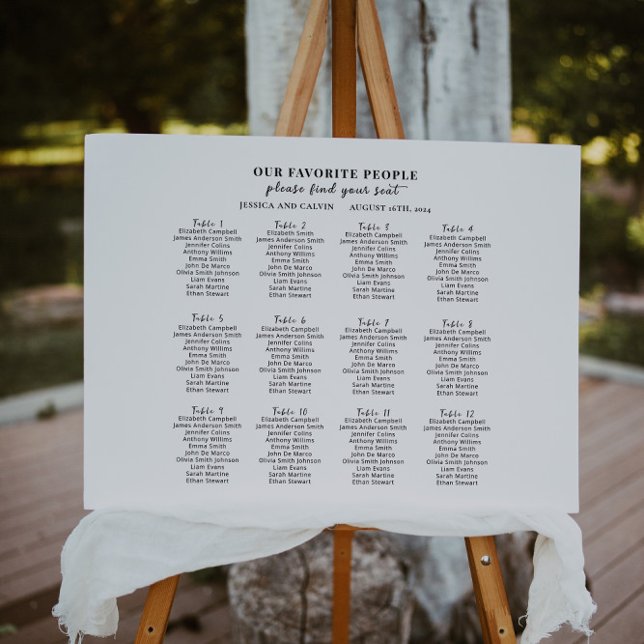 OUR FAVORITE PEOPLE
please find your seat
JESSICA AND CALVIN AUGUST 16TH, 2024
Table 1
Elizabeth Campbell
James Anderson Smith
Jennifer Colins
Anthony Willims
Emma Smith
John De Marco
Olivia Smith Johnson
Liam Evans
Sarah Martine
Ethan Stewart
Table 2
Elizabeth Smith
James Anderson Smith
Jennifer Colins
Anthony Willims
Emma Smith
John De Marco
Olivia Smith Johnson
Liam Evans
Sarah Martine
Ethan Stewart
Table 3
Elizabeth Campbell
James Anderson Smith
Jennifer Colins
Anthony Willims
Emma Smith
John De Marco
Olivia Smith Johnson
Liam Evans
Sarah Martine
Ethan Stewart
Table 4
Elizabeth Campbell
James Anderson Smith
Jennifer Colins
Anthony Willims
Emma Smith
John De Marco
Olivia Smith Johnson
Liam Evans
Sarah Martine
Ethan Stewart
Table 5
Elizabeth Campbell
James Anderson Smith
Jennifer Colins
Anthony Willims
Emma Smith
John De Marco
Olivia Smith Johnson
Liam Evans
Sarah Martine
Ethan Stewart
Table 6
Elizabeth Campbell
James Anderson Smith
Jennifer Colins
Anthony Willims
Emma Smith
John De Marco
Olivia Smith Johnson
Liam Evans
Sarah Martine
Ethan Stewart
Table 7
Elizabeth Campbell
James Anderson Smith
Jennifer Colins
Anthony Willims
Emma Smith
John De Marco
Olivia Smith Johnson
Liam Evans
Sarah Martine
Ethan Stewart
Table 8
Elizabeth Campbell
James Anderson Smith
Jennifer Colins
Anthony Willims
Emma Smith
John De Marco
Olivia Smith Johnson
Liam Evans
Sarah Martine
Ethan Stewart
Table 9
Elizabeth Campbell
James Anderson Smith
Jennifer Colins
Anthony Willims
Emma Smith
John De Marco
Olivia Smith Johnson
Liam Evans
Sarah Martine
Ethan Stewart
Table 10
Elizabeth Campbell
James Anderson Smith
Jennifer Colins
Anthony Willims
Emma Smith
John De Marco
Olivia Smith Johnson
Liam Evans
Sarah Martine
Ethan Stewart
Table 11
Elizabeth Campbell
James Anderson Smith
Jennifer Colins
Anthony Willims
Emma Smith
John De Marco
Olivia Smith Johnson
Liam Evans
Sarah Martine
Ethan Stewart
Table 12
Elizabeth Campbell
James Anderson Smith
Jennifer Colins
Anthony Willims
Emma Smith
John De Marco
Olivia Smith Johnson
Liam Evans
Sarah Martine
Ethan Stewart